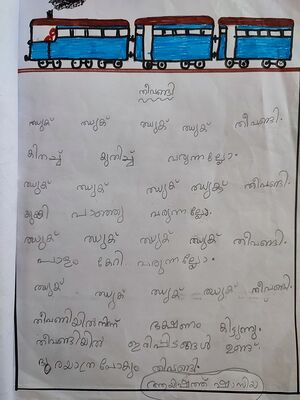 തീവണ്ടി
ഝുക് ഝുക് ഝുക് ഝുക് തീവണ്ടി.
കിതച്ച് കുതിച്ച് വരുന്നല്ലോ.
ഝുക് ഝുക് ഝുക് ഝുക് തീവണ്ടി.
കൂകി പാഞ്ഞു വരുന്നല്ലോ.
ഝുക് ഝുക് ഝുക് ഝുക് തീവണ്ടി.
പാളം കേറി വരുന്നല്ലോ.
ഝുക് ഝുക് ഝുക് ഝുക് തീവണ്ടി
തീവണ്ടിയിൽനിന്ന് ഭക്ഷണം കിട്ടുന്നു.
തീവണ്ടിയിൽ ഇരിപ്പിടങ്ങൾ ഉണ്ട്
ദൂരയാത്ര പോകും തിവണ്ടി.
ആയിഷത്ത് ഷാസിയ